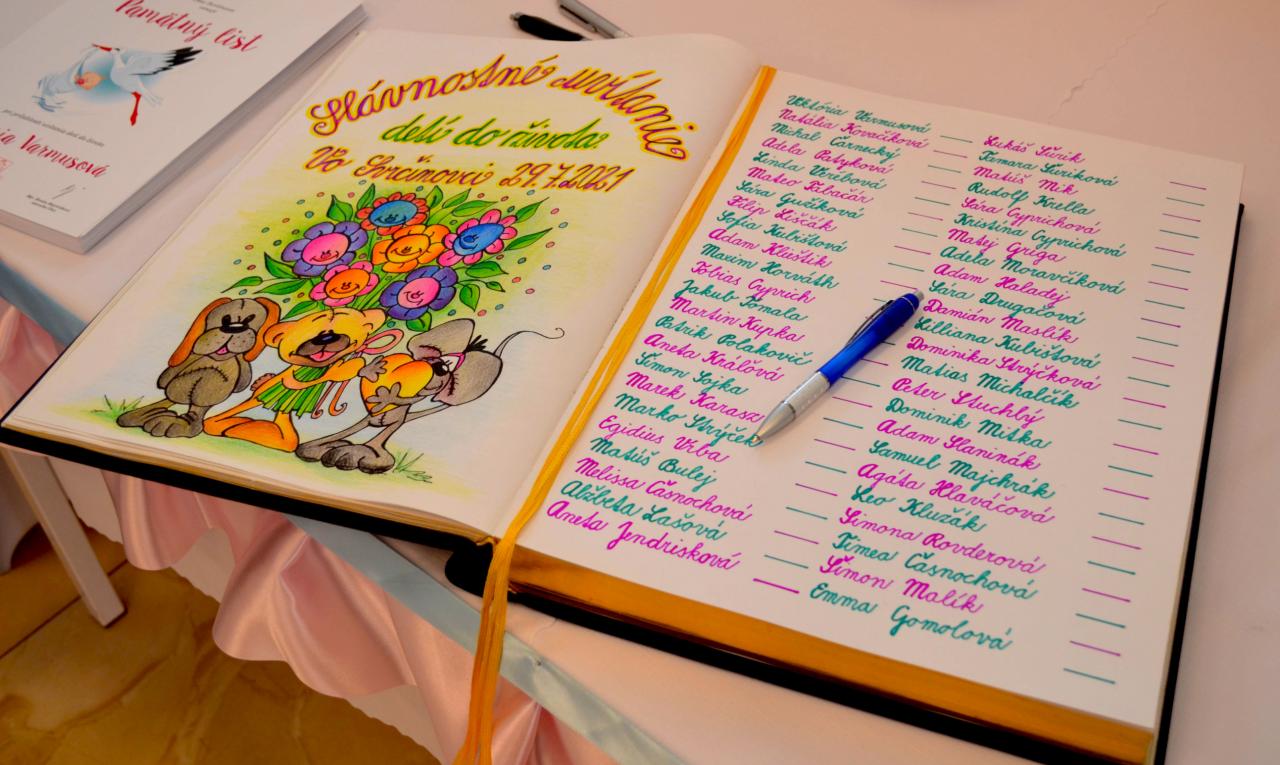 Pamätný list
Varmusová
Slávnostné uvítanie
detí do života.
Vo Svrčinovci 29.7.2021
Viktória Varmusová
Natália Kovačiková
Michal Čarnecký
Adela Patyková
Linda Verébová
Mateo Tabačár
Sára Gužíková
Filip Liščák
Sofia Kulištová
Adam Kluštik
Maxim Horváth
Tobias Cyprich
Jakub Tomala
Martin Kupka
Patrik Polakovič
Aneta Kráľová
Šimon Sojka
Marek Karasz
Marko Strýček
Egidius Vrba
Matúš Bulej
Melissa Časnochová
Alžbeta Lašová
Aneta Jendrisková
Lukáš Šurik
Tamara Šuriková
Matúš Mik
Rudolf Krella
Sára Cyprichová
Kristína Cyprichová
Matej Griga
Adela Moravčíková
Adam Haladej
Sára Drugačová
Damián Maslík
Lilliana Kubištová
Dominika Strýčková
Matias Michalčík
Peter Stuchlý
Dominik Mitka
Adam Slaninák
Samuel Majchrák
Agáta Hlaváčová
Leo Klužák
Simona Rovderová
Timea Časnochová
Šimon Malík
Emma Gomolová